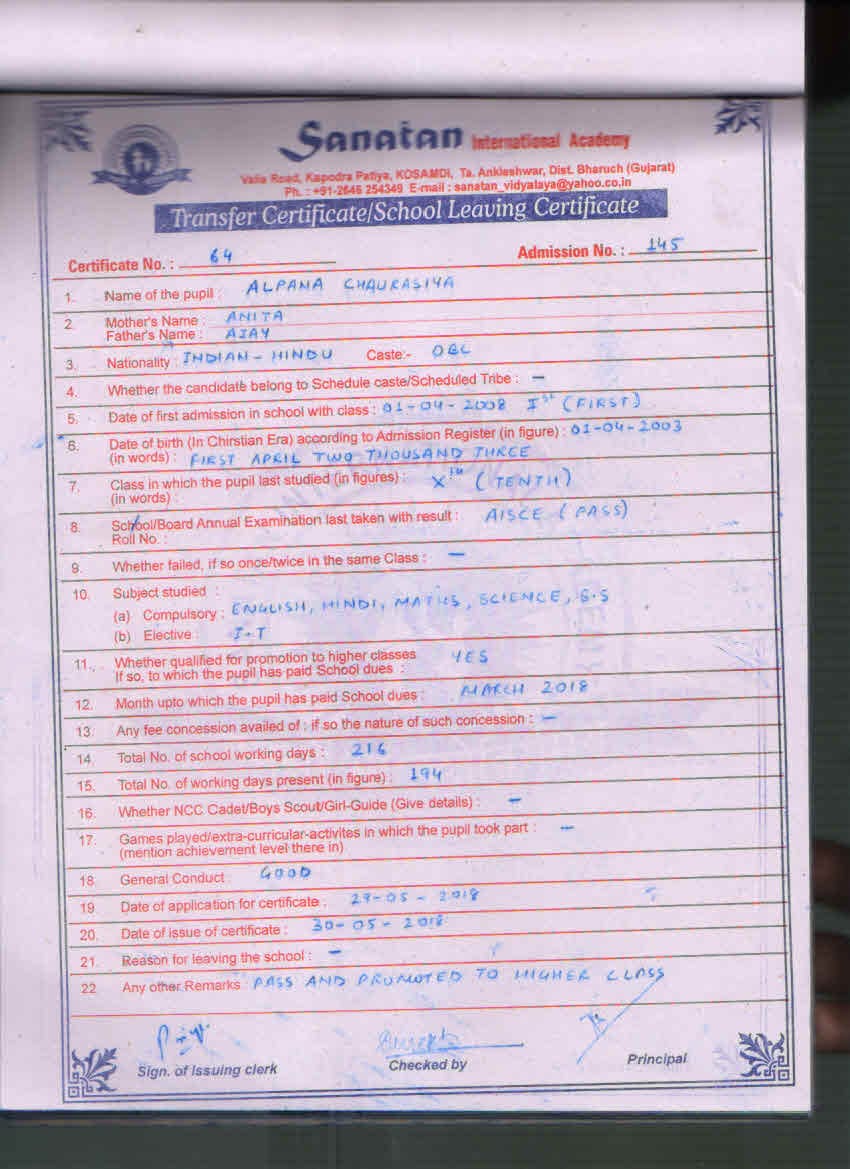 Sanatan International Academy
Valia Road, Kapodra Patiya, KOSAMDI, Ta. Ankleshwar, Dist. Bharuch (Gujarat)
Ph. : +91-2646 254349 E-mail : sanatan_vidyalaya@yahoo.co.in
Transfer Certificate/School Leaving Certificate
Certificate No. : 64 Admission No. : 145
1. Name of the pupil : ALPANA CHAURASIYA
2. Mother's Name : ANITA
Father's Name : AJAY
3. Nationality : INDIAN - HINDU Caste:- OBC
4. Whether the candidate belong to Schedule caste/Scheduled Tribe : —
5. Date of first admission in school with class : 01-04-2008 Ist (FIRST)
6. Date of birth (In Chirstian Era) according to Admission Register (in figure) : 01-04-2003
(in words) : FIRST APRIL TWO THOUSAND THREE
7. Class in which the pupil last studied (in figures) : Xth (TENTH)
(in words) :
8. School/Board Annual Examination last taken with result : AISCE (PASS)
Roll No. :
9. Whether failed, if so once/twice in the same Class : —
10. Subject studied :
(a) Compulsory : ENGLISH, HINDI, MATHS, SCIENCE, S.S
(b) Elective : I.T
11. Whether qualified for promotion to higher classes YES
If so, to which the pupil has paid School dues :
12. Month upto which the pupil has paid School dues : MARCH 2018
13. Any fee concession availed of : if so the nature of such concession : —
14. Total No. of school working days : 216
15. Total No. of working days present (in figure) : 194
16. Whether NCC Cadet/Boys Scout/Girl-Guide (Give details) : —
17. Games played/extra-curricular-activites in which the pupil took part : —
(mention achievement level there in)
18. General Conduct : GOOD
19. Date of application for certificate : 29-05-2018
20. Date of issue of certificate : 30-05-2018
21. Reason for leaving the school : —
22. Any other Remarks : PASS AND PROMOTED TO HIGHER CLASS
Sign. of Issuing clerk Checked by Principal